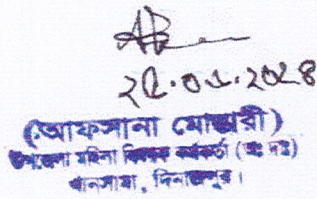 ২৫.০১.২০২৪
(আফসানা মোস্তারী)
উপজেলা মহিলা বিষয়ক কর্মকর্তা (অঃ দাঃ)
খানসামা, দিনাজপুর।